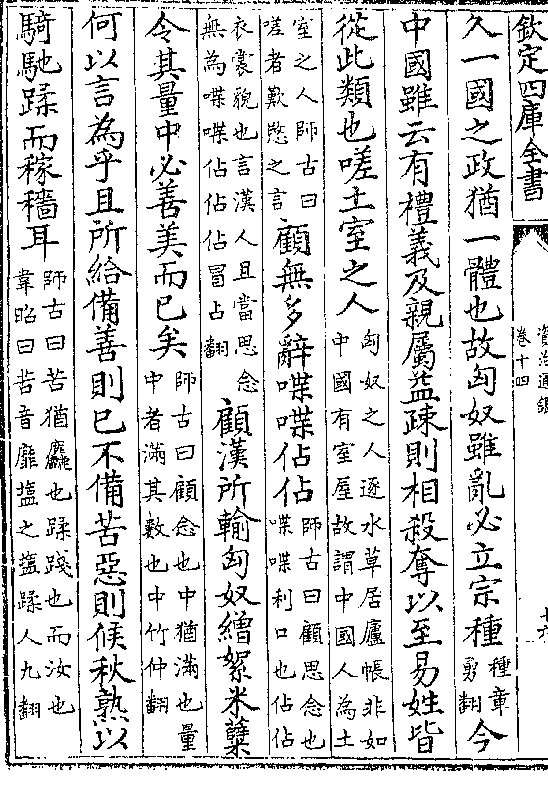 欽定四庫全書
資治通鑑
卷十四
十六
久一國之政猶一體也故匈奴雖亂必立宗種種章勇翻今
中國雖云有禮義及親屬益疎則相殺奪以至易姓皆
從此類也嗟土室之人匈奴之人逐水草居廬帳非如中國有室屋故謂中國人為土
室之人師古曰嗟者歎愍之言顧無多辭喋喋佔佔師古曰顧思念也喋喋利口也佔佔
衣裳貌也言漢人且當思念無為喋喋佔佔佔昌占翻顧漢所輸匈奴繒絮米糱
令其量中必善美而已矣師古曰顧念也中猶滿也量中者滿其數也中竹仲翻
何以言為乎且所給備善則已不備苦惡則候秋熟以
騎馳蹂而稼穡耳師古曰苦猶麤也蹂踐也而汝也韋昭曰苦音靡盬之盬蹂人九翻